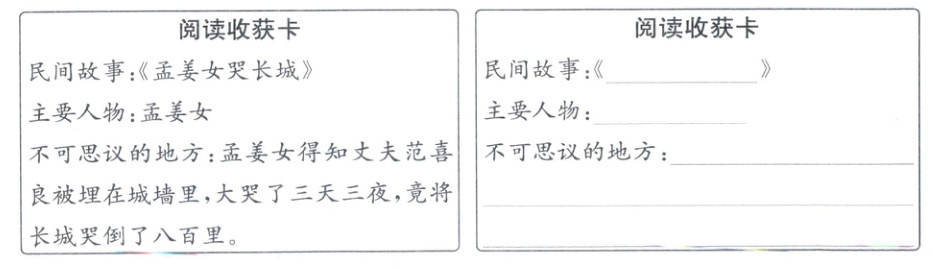 阅读收获卡
民间故事:《孟姜女哭长城》
主要人物:孟姜女
不可思议的地方:孟姜女得知丈夫范喜
良被埋在城墙里,大哭了三天三夜,竟将
长城哭倒了八百里。
阅读收获卡
民间故事:《 》
主要人物:
不可思议的地方: